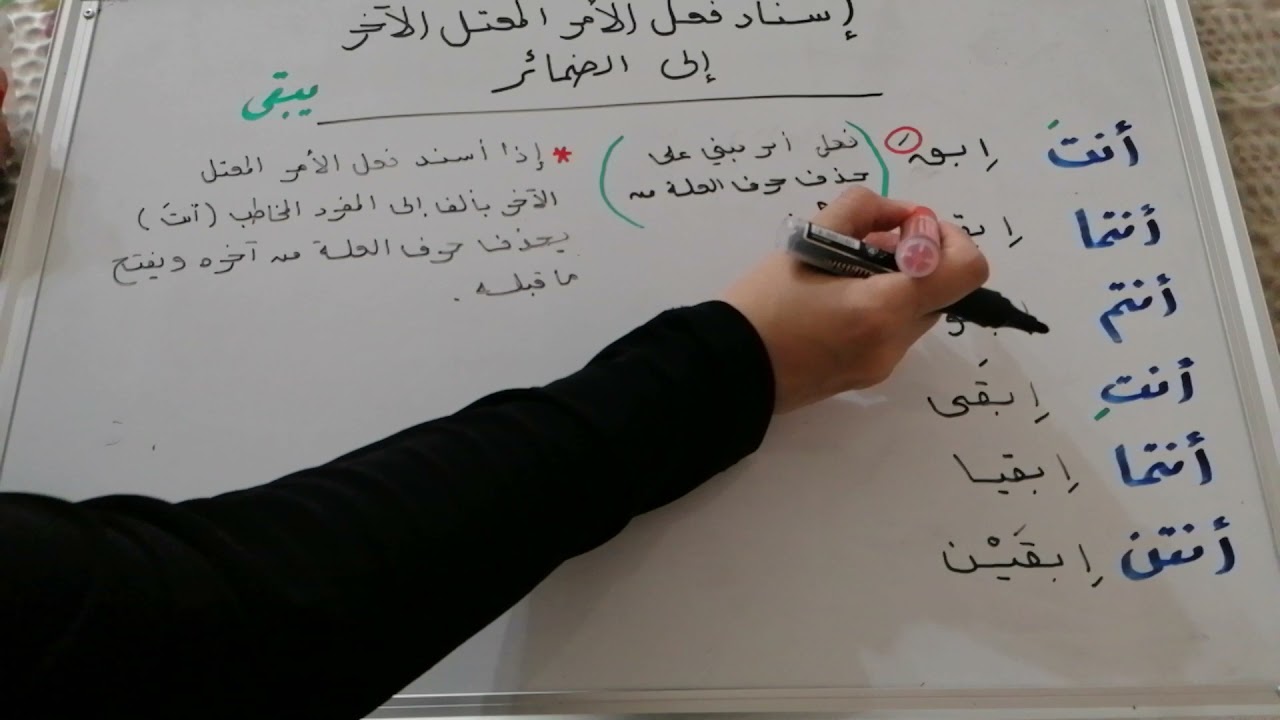 إسناد فعل الأمر المعتل الآخر
إلى الضمائر
يبقى
أنتَ اِبقَ
فعل أمر مبني على
حذف حرف العلة من
* إذا أسند فعل الأمر المعتل
الآخر بألف إلى المفرد المخاطب (أنتَ)
يحذف حرف العلة من آخره ويفتح
ما قبله .
أنتما
أنتم
أنتِ اِبقَى
أنتما اِبقيا
أنتن اِبقَيْن